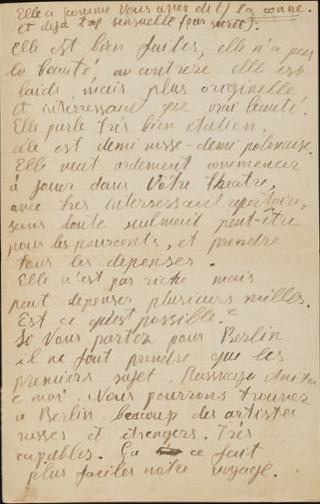 Elle a (comme Vous avez dit) la conne.
et dejà trop sensuelle (par secret).
Elle est bien faites, elle n'a pas
la beauté, au contrere elle est
laide, mais plus originelle
et interressant que vrai beauté.
Elle parle très bien italien,
elle est demi russe-demi polonaise.
Elle veut ardement commencer
à jouer dans Vôtre theatre,
avec très interessant repertoire,
sans doute seulment peut-être
pour les pourcents, et prendre
tous les depenses.
Elle n'est pas riche mais
peut depenser plusieurs milles.
Est ce qu'est possible?
Si Vous partez pour Berlin
il ne faut prendre que les
premiers sujet,
e moi. Nous pourrons trouver
a Berlin beaucoup des artistes
russes et etrangers. Très
capables. Ça ce fait
plus faciles notre voyage.